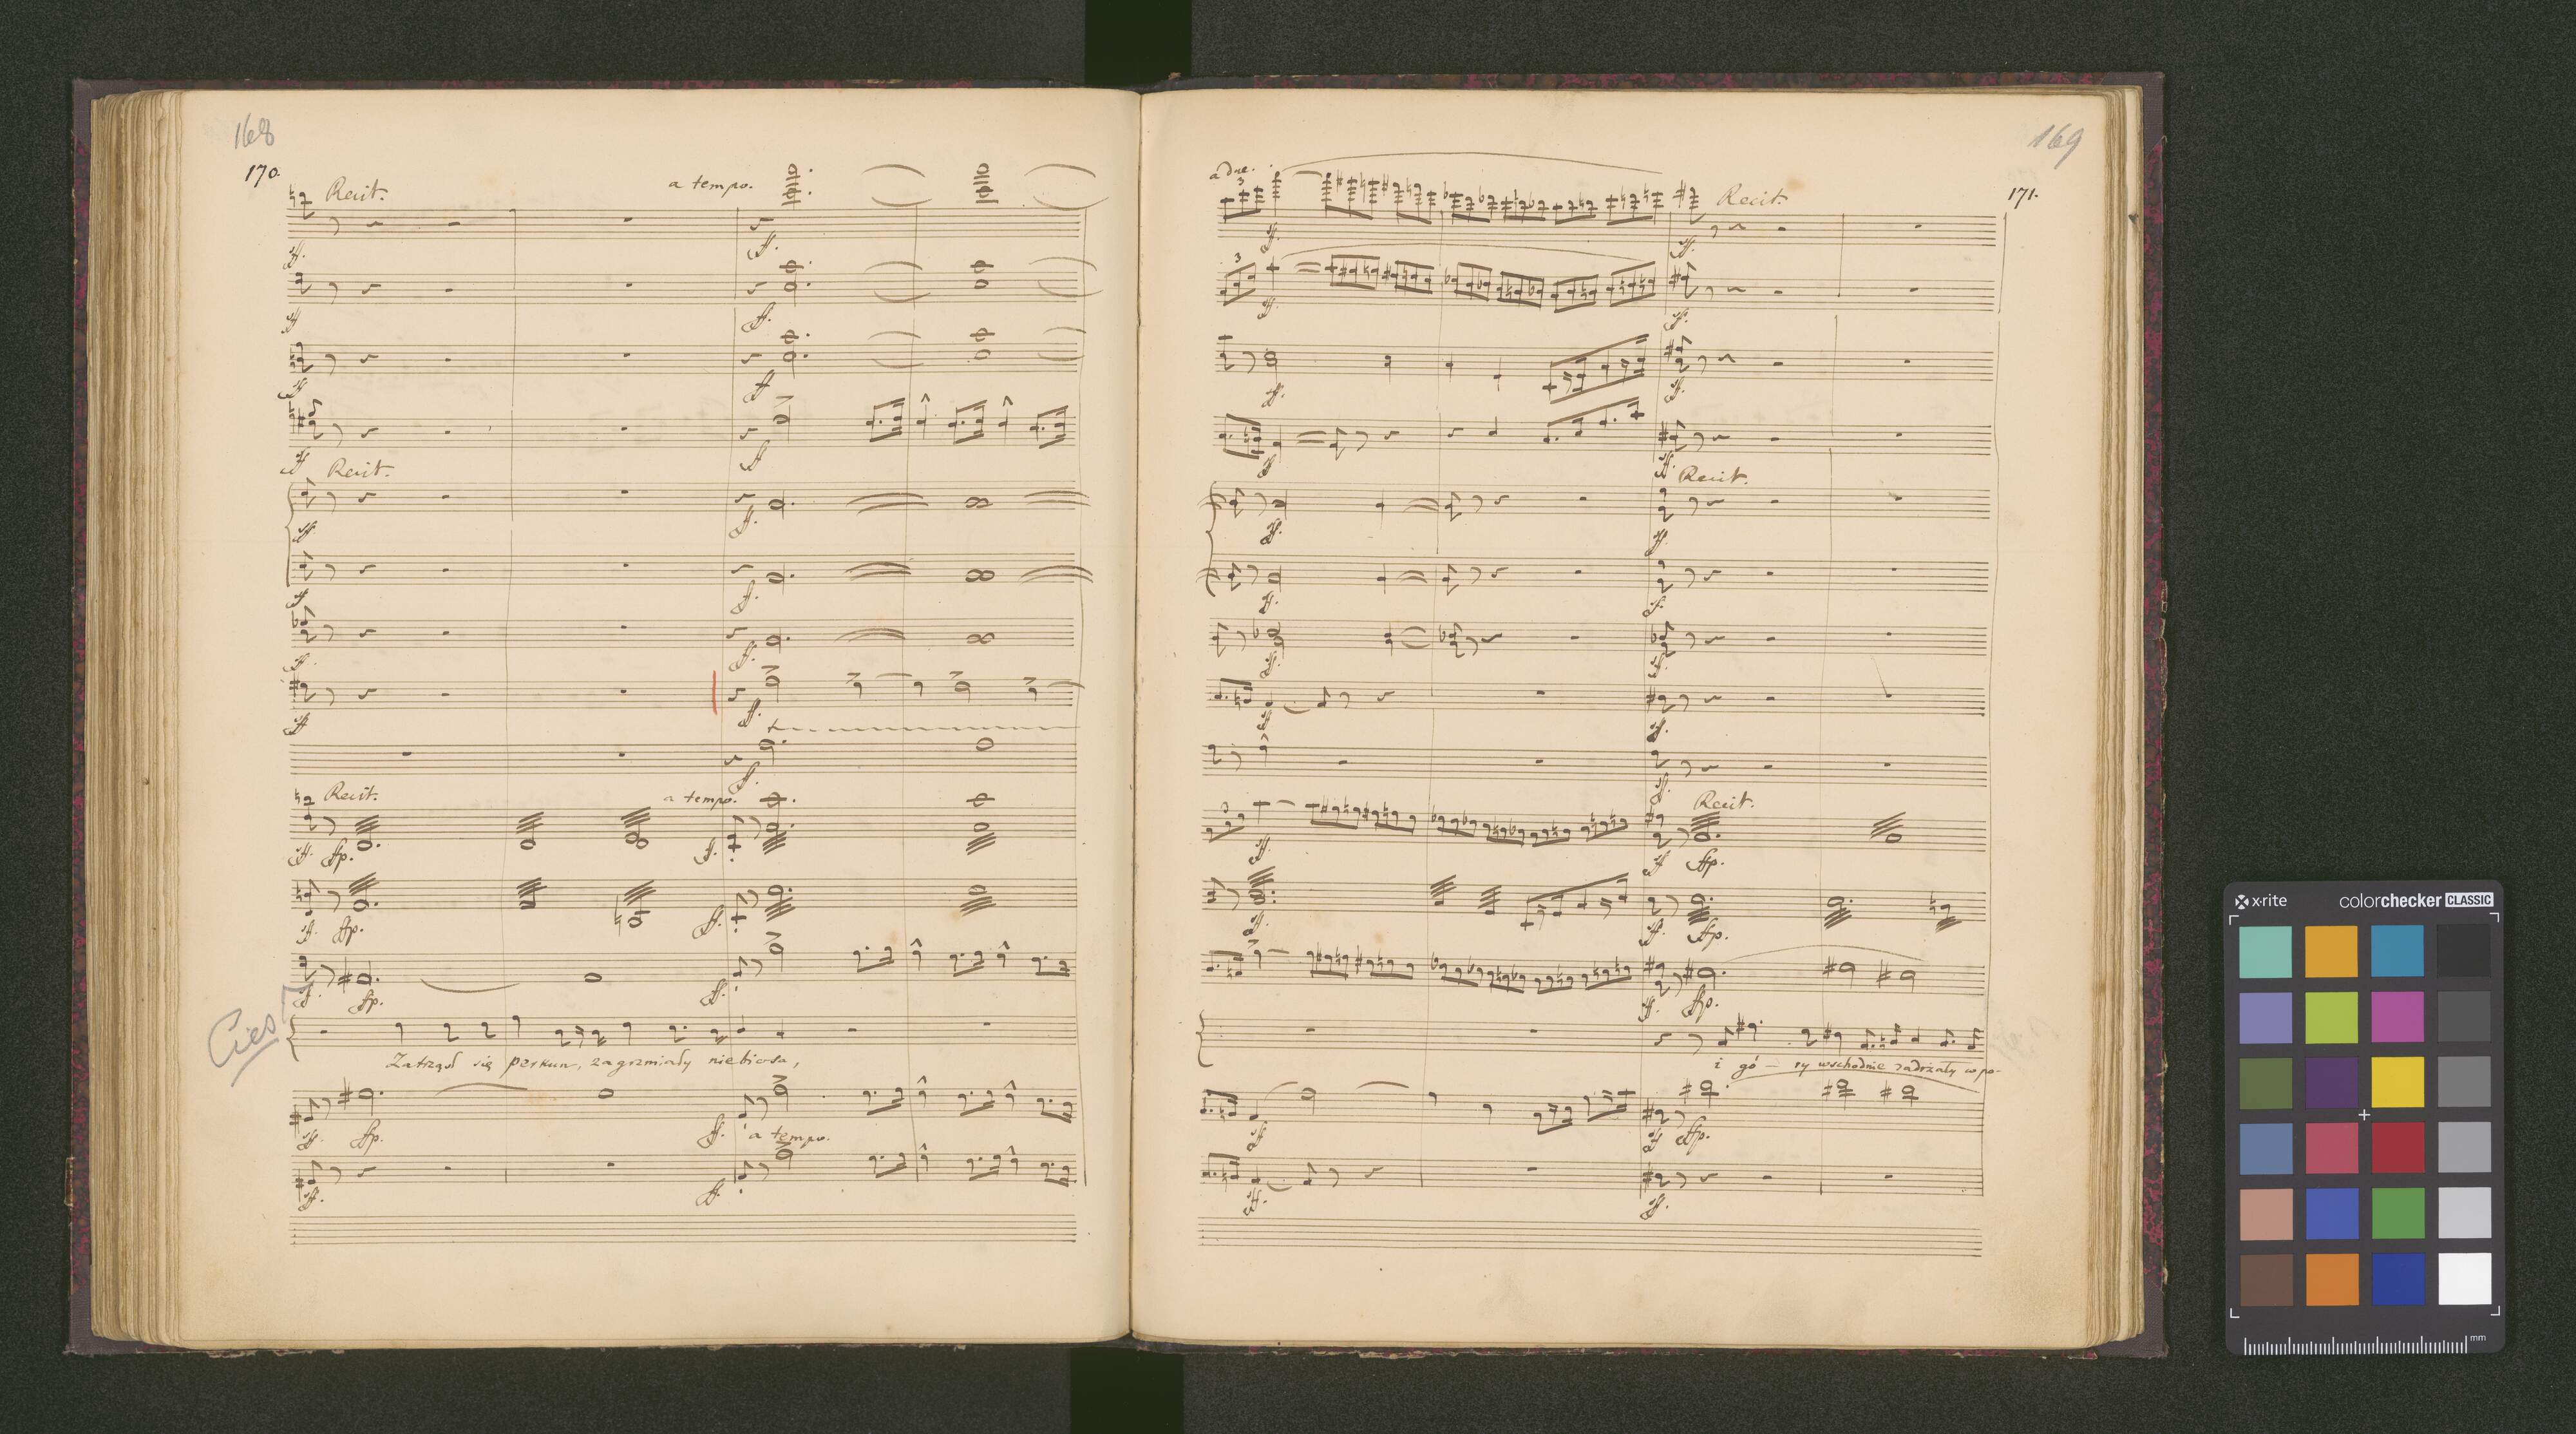 168
170.
Recit.
a tempo.
ff.
ff.
ff
ff.
ff
ff
ff
ff
Recit.
ff.
ff.
ff
ff.
ff.
ff.
ff
ff.
ff.
Recit.
a tempo.
ff. fp.
ff.
ff. fp.
ff.
ff. fp.
ff.
Cis
Zatrząsł się perkun, zagrzmiały niebiosa,
ff. fp.
ff.
a tempo.
ff.
ff.
169
171.
a due.
3
Recit.
ff.
ff.
3
ff.
ff.
ff.
ff.
ff
ff.
Recit.
ff.
ff.
ff.
ff.
ff.
ff.
ff
ff.
ff.
3
Recit.
ff.
ff ffp.
ff.
ff. ffp.
ff. ffp.
i gó - ry wschodnie zadrżały w po-
ff
ff ffp.
ff.
ff.
x-rite
colorchecker CLASSIC
mm